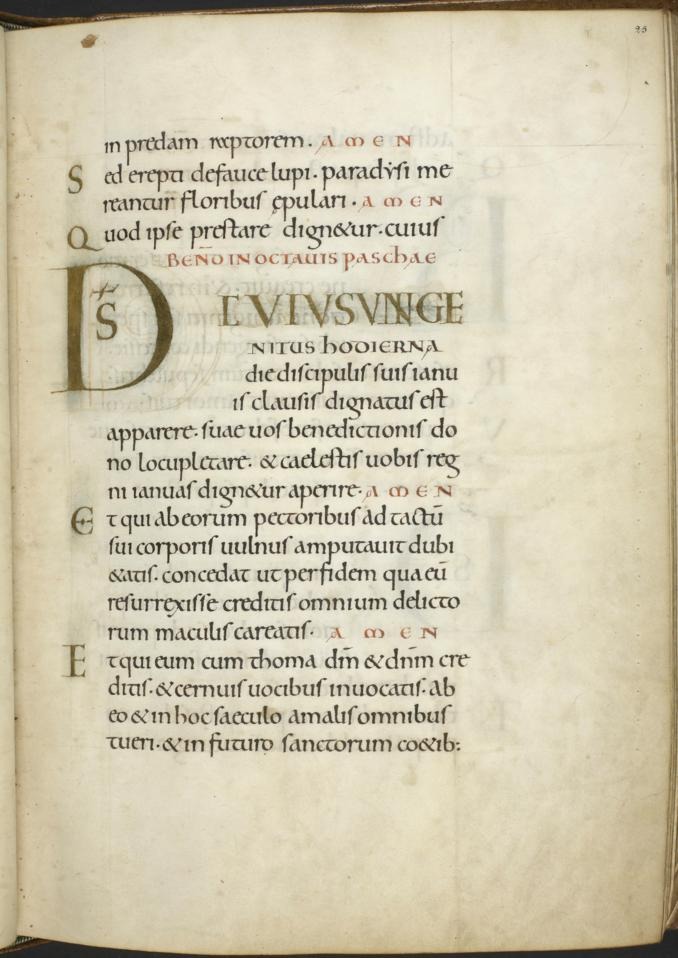 25
in predam raptorem. AMEN
Sed erepti defauce lupi. paradysi me
reantur floribus epulari. AMEN
Quod ipse prestare dign&ur. cuius
BEN̄D IN OCTAUIS PASCHAE
D̄S CUIVS VNIGE
NITUS HODIERNA
die discipulis suis ianu
is clausis dignatus est
apparere. suae uos benedictionis do
no locupletare. & caelestis uobis reg
ni ianuas dign&ur aperire. AMEN
Et qui ab eorum pectoribus ad tactū
sui corporis uulnus amputauit dubi
&atis. concedat ut per fidem qua eū
resurrexisse creditis omnium delicto
rum maculis careatis. AMEN
Et qui eum cum thoma dm̄ & dn̄m cre
ditis. & cernuis uocibus inuocatis. ab
eo & in hoc saeculo a malis omnibus
tueri. & in futuro sanctorum co&ib: